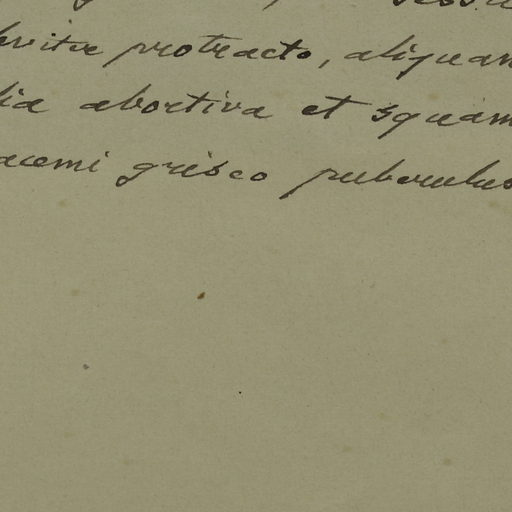 breviter protracto, aliquan
lia abortiva et squam
racemi griseo puberulus